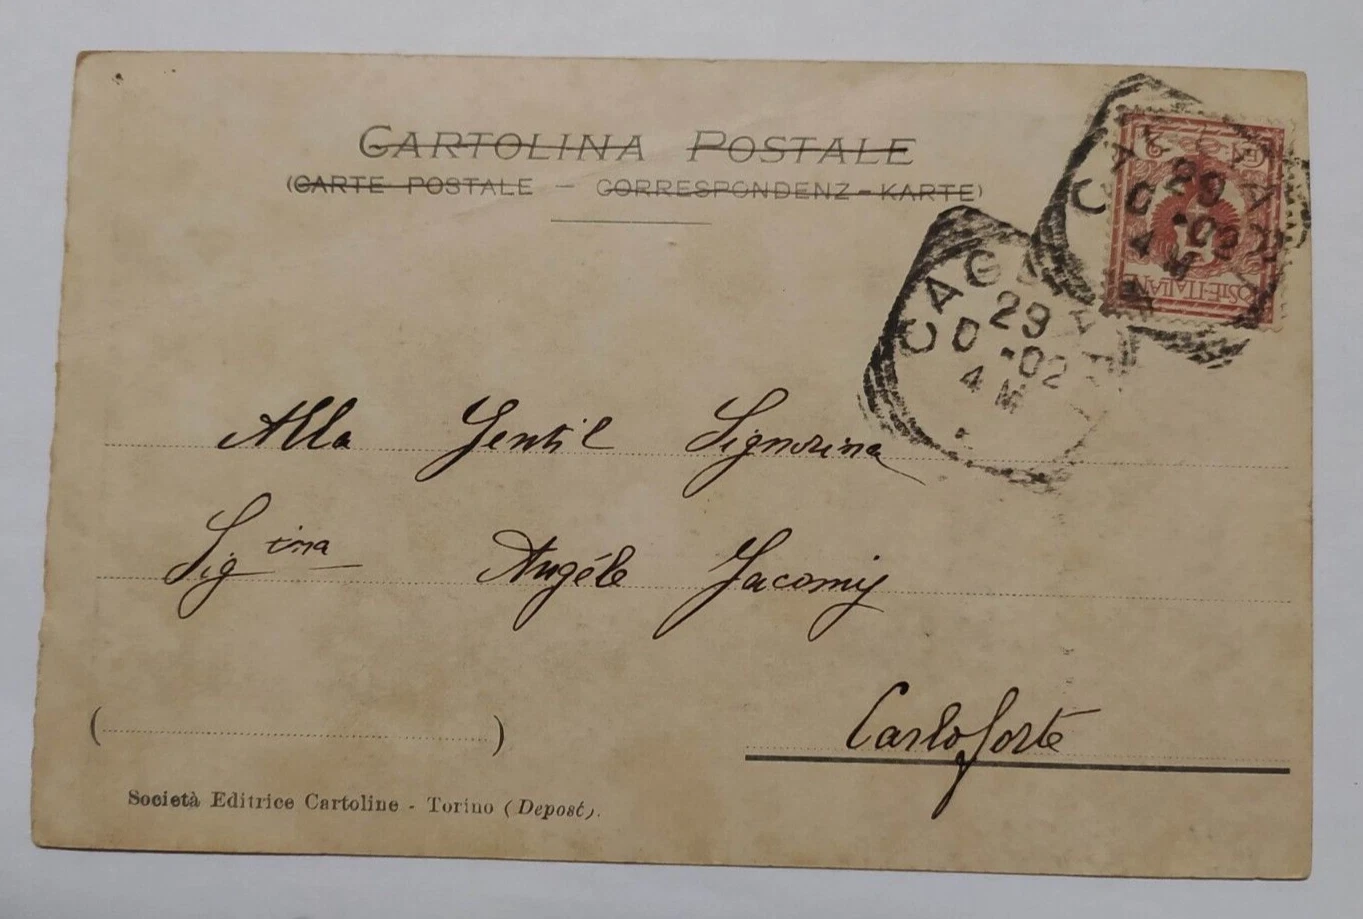 CARTOLINA POSTALE
(CARTE POSTALE – CORRESPONDENZ-KARTE)
CAGLIARI
29
D -02
4 M
CAGLIARI
29
D -02
4 M
POSTE·ITALIANE
2
Alla Gentil Signorina
Sig ina Angéle Jacomij
Carloforte
( )
Società Editrice Cartoline - Torino (Depost).